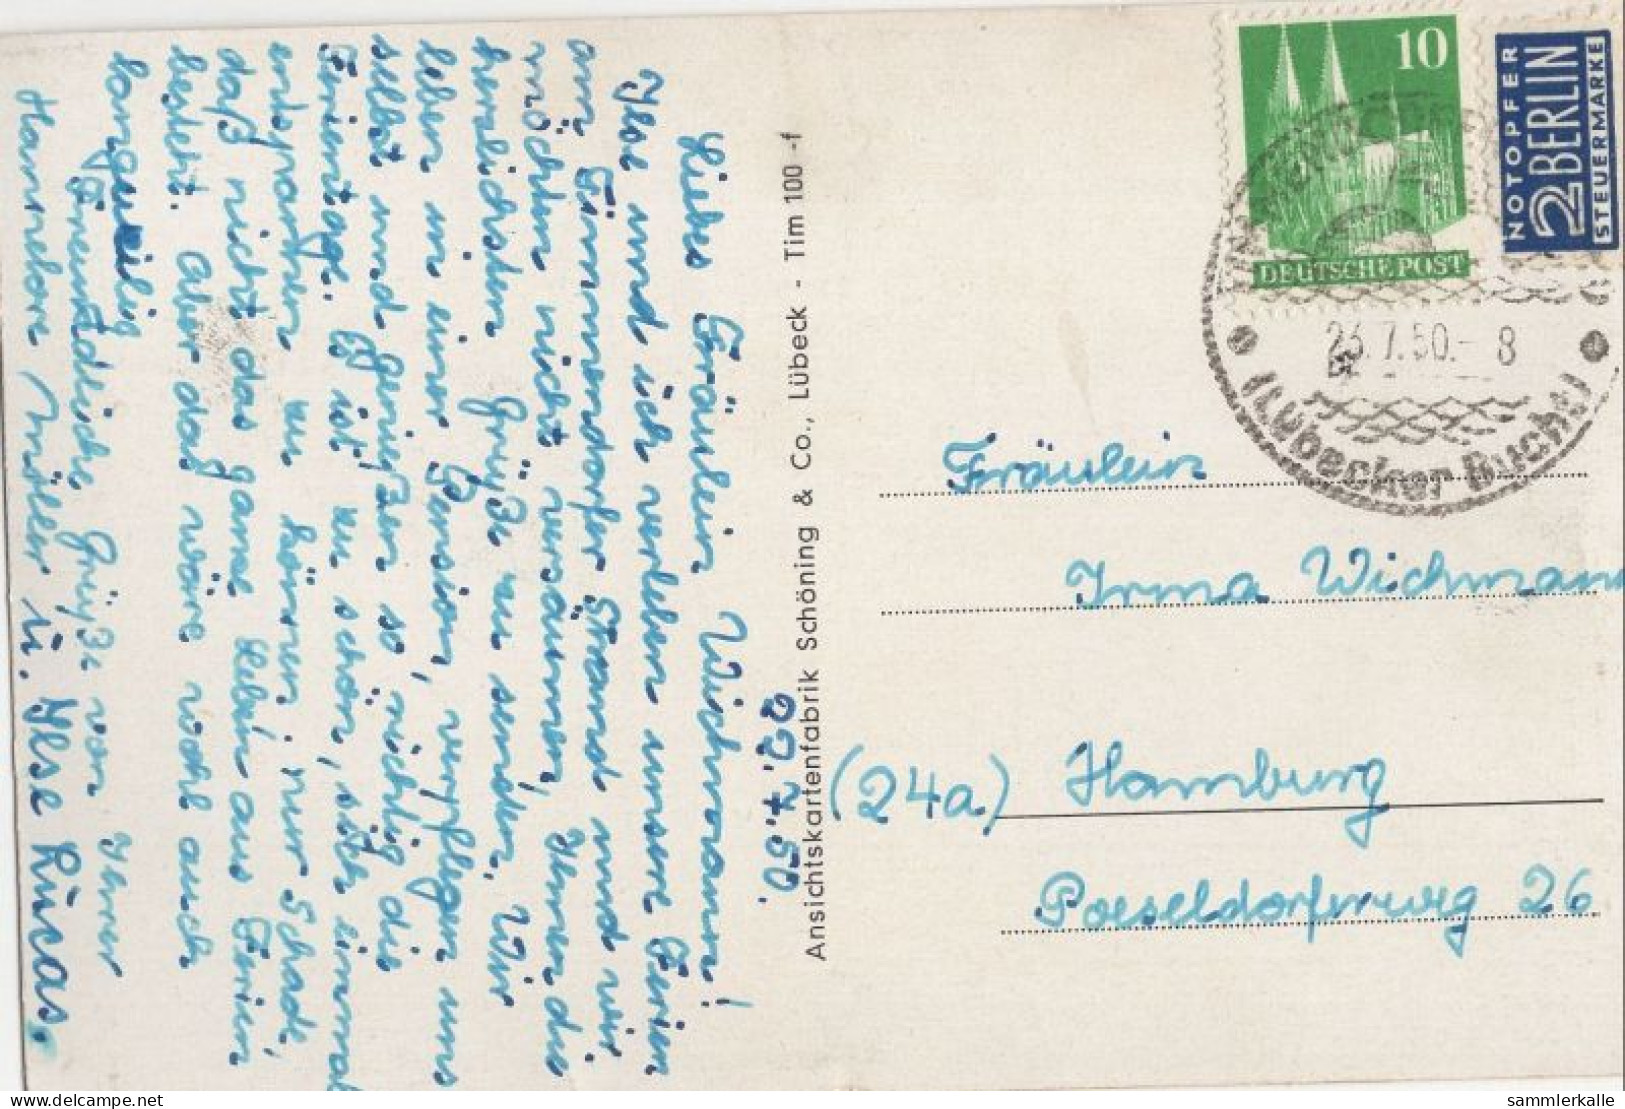 22.7.50.
Liebes Fräulein Wichmann!
Ilse und ich verleben unsere Ferien
am Timmendorfer Strand und wir
möchten nicht versäumen, Ihnen die
herzlichsten Grüße zu senden. Wir
leben in einer Pension, verpflegen uns
selbst und genießen so richtig die
Ferientage. Es ist zu schön, sich einmal
entspannen zu können, nur schade,
daß nicht das ganze Leben aus Ferien
besteht. Aber das wäre wohl auch
langweilig
Freundliche Grüße von Ihrer
Hannelore Müller u. Ilse Lucas.
Ansichtskartenfabrik Schöning & Co., Lübeck - Tim 100 -f
10
DEUTSCHE POST
NOTOPFER
2 BERLIN
STEUERMARKE
23.7.50.- 8
(Lübecker Bucht)
Fräulein
Irma Wichmann
(24a) Hamburg
Poeseldorferweg 26
sammlerkalle